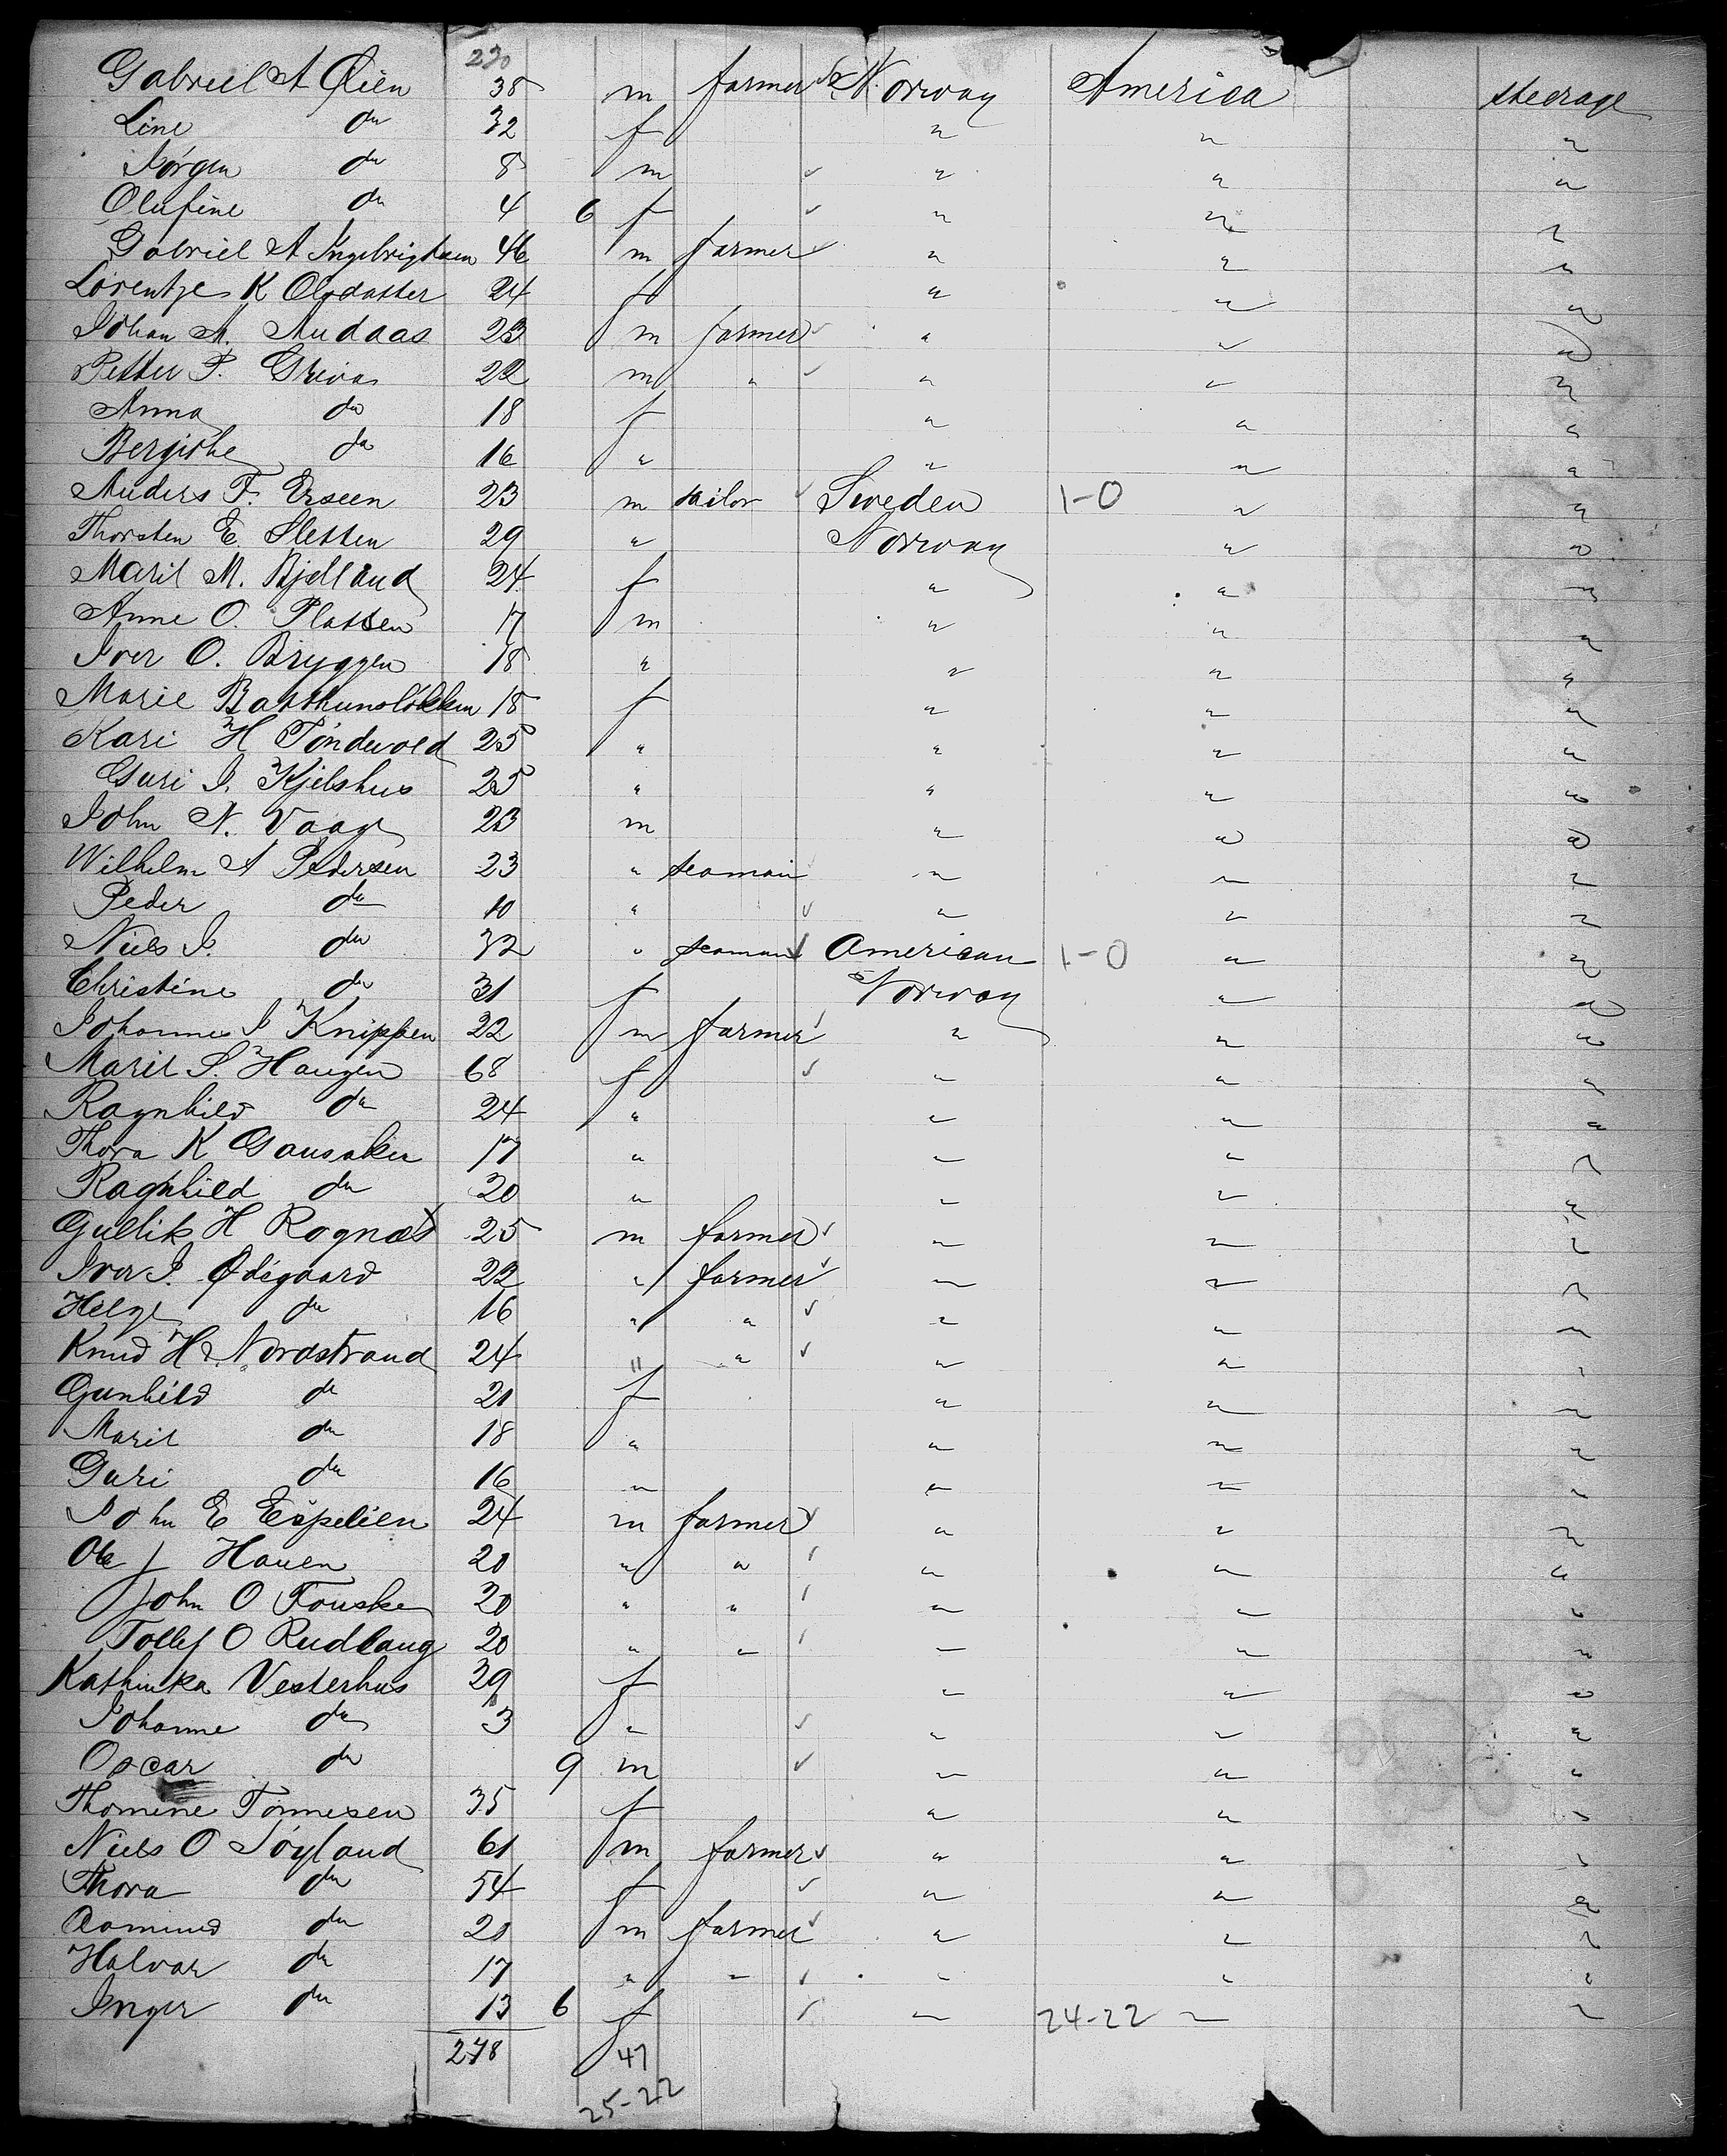 230
Gabriel A Øien 38 m farmer Norway America steerage
Line do 32 f " " "
Jörgen do 8 m " " "
Olufine do 4 6 f " " "
Gabriel A Ingebrigtsen 46 m farmer " " "
Lorentze K Olsdatter 24 f " " "
Johan A. Audaas 23 m farmer " " "
Petter P. Greva 22 m " " " "
Anna do 18 f " " "
Bergithe do 16 " " " "
Anders F. Erseen 23 m sailor Sweden 1-0 " "
Thorsten E. Sletten 29 " Norway " "
Marit M. Bjelland 24 f " " "
Anne O. Platsen 17 m " " "
Iver O. Bryggen 18 " " " "
Marie Batthunslökken 18 f " " "
Kari H Töndevold 25 " " " "
Guri I. Kjelshus 25 " " " "
John N. Vaage 23 m " " "
Wilhelm A Pedersen 23 " seaman " " "
Peder do 10 " " " "
Niels I. do 32 " seaman American 1-0 " "
Christine do 31 f Norway " "
Johannes I Knippen 22 m farmer " " "
Marit S. Haugen 68 f " " "
Ragnhild do 24 " " " "
Thora K Gausaker 17 " " " "
Ragnhild do 20 " " " "
Gullik H Rognas 25 m farmer " " "
Iver I. Ødegaard 22 " farmer " " "
Helge do 16 " " " " "
Knud H. Nordstrand 24 " " " " "
Gunhild do 21 f " " "
Marit do 18 " " " "
Guri do 16 " " " "
John E Espelien 24 m farmer " " "
Ole J Hauen 20 " " " " "
John O Fouske 20 " " " " "
Tollef O Rudlaug 20 " " " " "
Kathinka Vesterhus 39 f " " "
Johanne do 3 " " " "
Oscar do 9 m " " "
Thomine Tönnesen 35 f " " "
Niels O Föyland 61 m farmer " " "
Thora do 54 f " " "
Aamund do 20 m farmer " " "
Halvar do 17 " " " " "
Inger do 13 6 f " 24-22 " "
278 47
25-22